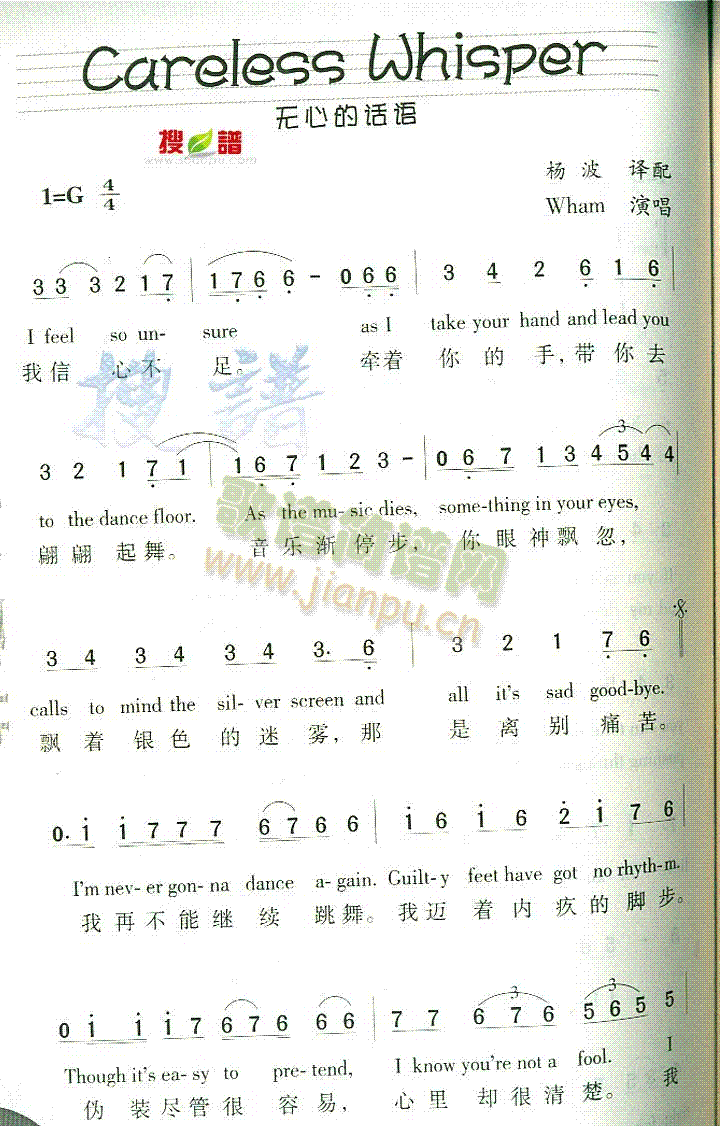 Careless Whisper
无心的话语
搜谱
www.sooopu.com
1=G 4/4
杨波 译配
Wham 演唱
3 3 3 2 1 7 | 1 7 6 6 - 0 6 6 | 3 4 2 6 1 6 |
I feel so un- sure as I take your hand and lead you
我信 心不 足。 牵着 你 的 手, 带 你 去
3 2 1 7 1 | 1 6 7 1 2 3 - | 0 6 7 1 3 4 5 4 4 |
to the dance floor. As the mu- sic dies, some-thing in your eyes,
翩 翩 起 舞。 音 乐 渐 停 步, 你 眼 神 飘 忽,
歌谱简谱网
www.jianpu.cn
3 4 3 4 3 4 3. 6 | 3 2 1 7 6
calls to mind the sil- ver screen and all it's sad good-bye.
飘 着 银 色 的 迷 雾, 那 是 离 别 痛 苦。
0. i i 7 7 7 6 7 6 6 | i 6 i 6 2 i 7 6
I'm nev- er gon- na dance a- gain. Guilt- y feet have got no rhyth-m.
我 再 不 能 继 续 跳 舞。 我 迈 着 内 疚 的 脚 步。
0 i i i 7 6 7 6 6 6 | 7 7 6 7 6 5 6 5 5
Though it's ea- sy to pre- tend, I know you're not a fool. I
伪 装 尽 管 很 容 易, 心 里 却 很 清 楚。 我